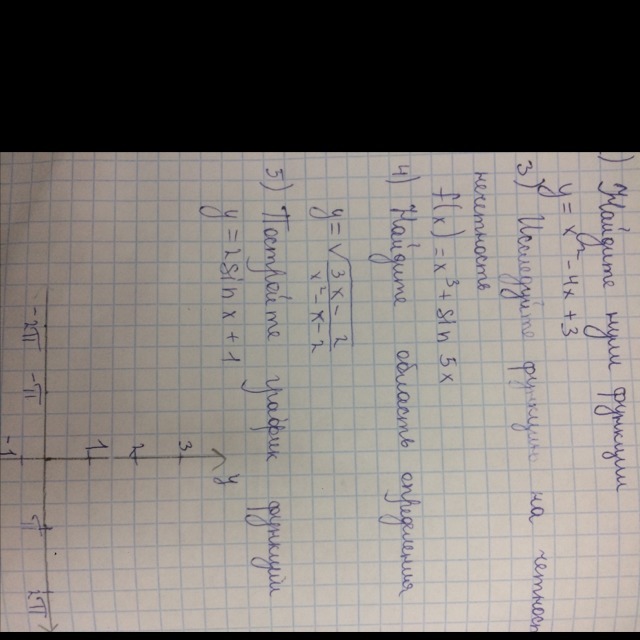 ) Найдите нули функции
y = x² - 4x + 3
3) Исследуйте функцию на четность
нечетность
f(x) = x³ + sin 5x
4) Найдите область определения
y = √(3x - 2 / x² - x - 2)
5) Постройте график функций
y = 2sin x + 1
y
3
2
1
-2π -π π 2π
-1